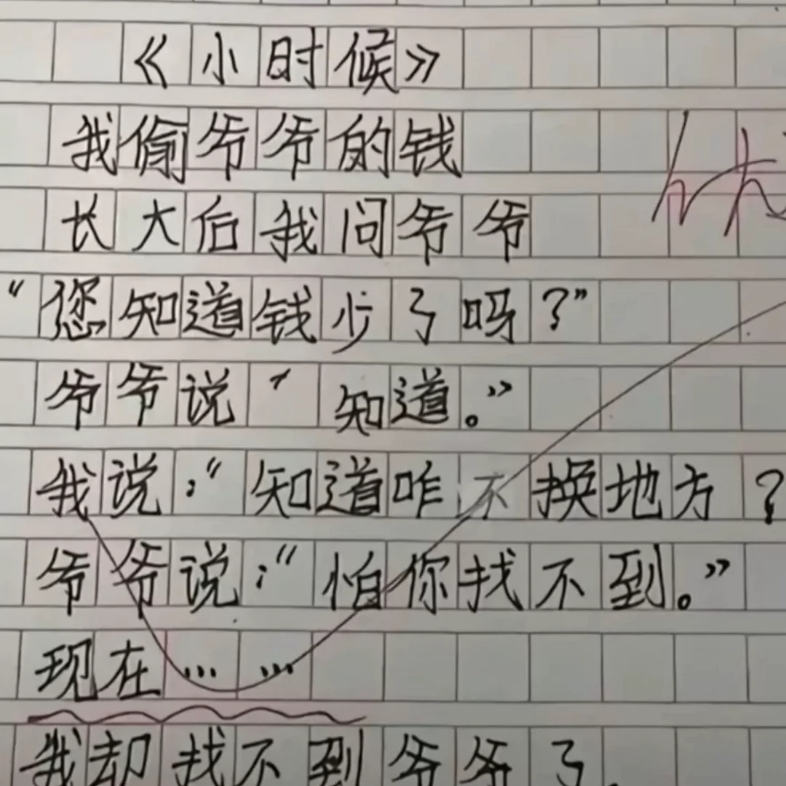 《小时候》
我偷爷爷的钱
长大后我问爷爷
“您知道钱少了吗？”
爷爷说“知道。”
我说：“知道咋不换地方？
爷爷说：“怕你找不到。”
现在……
我却找不到爷爷了.